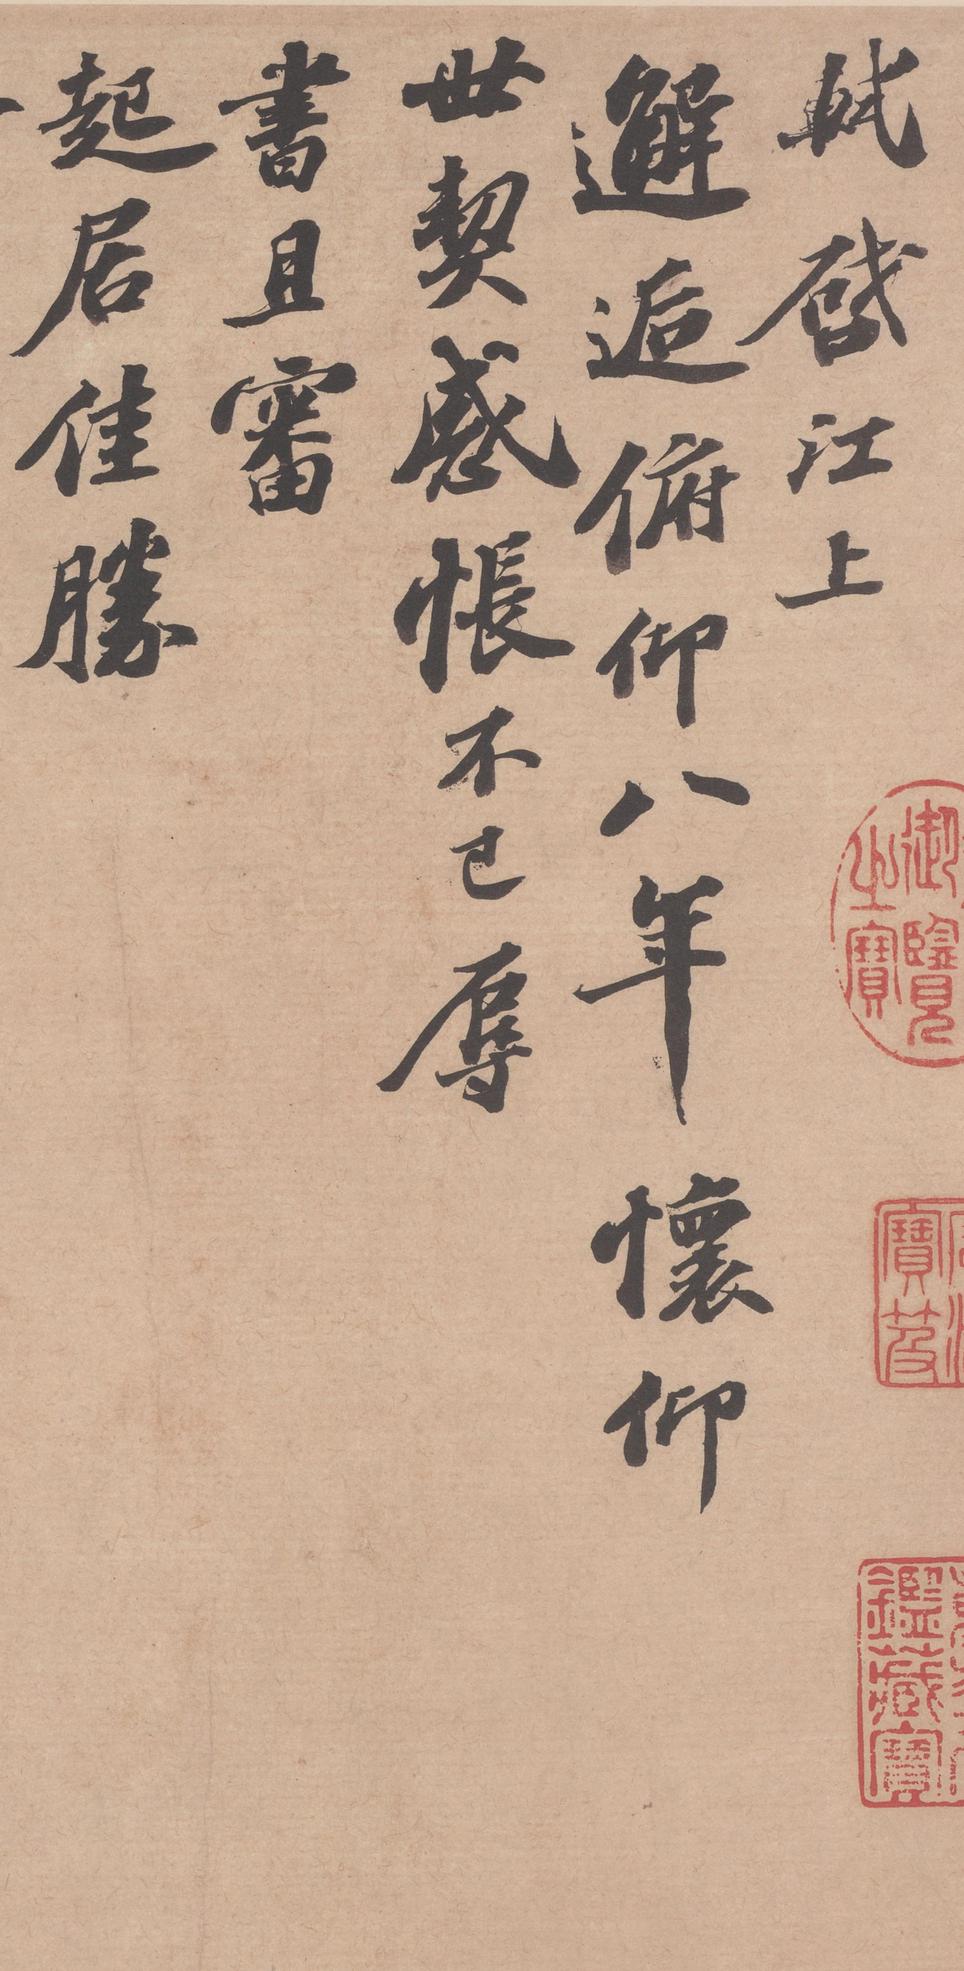 軾啓江上
邂逅俯仰八年懷仰
世契感悵不已辱
書且審
起居佳勝
御覽之寶
寶笈
鑑藏寶